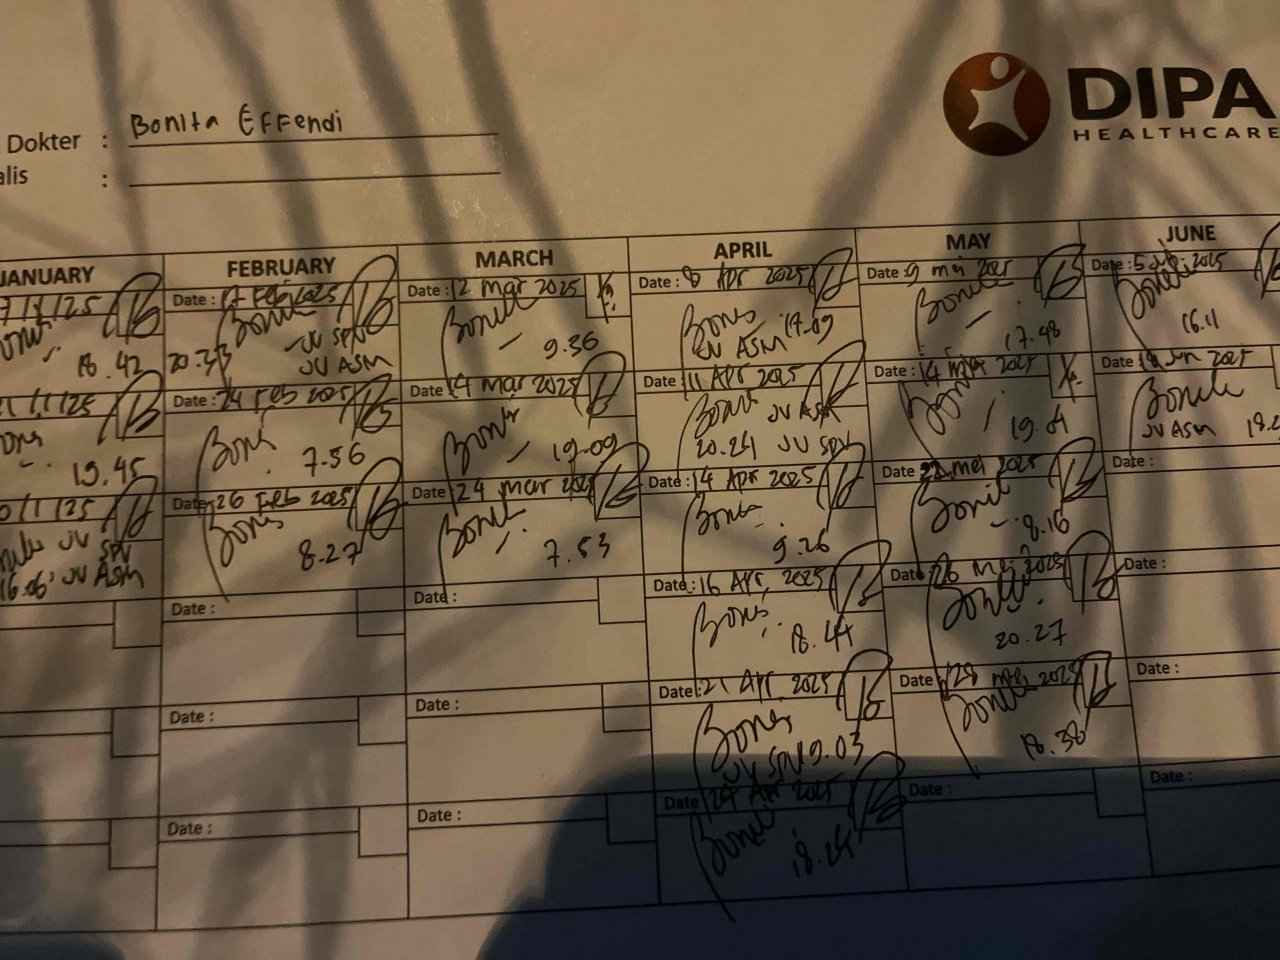 DIPA
HEALTHCARE
Dokter : Bonita Effendi
alis :
JANUARY
7/1/25
18.42
1/1/25
19.45
0/1/25
JV SPV
16.06 JV ASM
FEBRUARY
Date : 17 Feb 2025
Bonita
20.33 JV SPV
JV ASM
Date : 24 Feb 2025
Bons
7.56
Date : 26 Feb 2025
Bons
8.27
Date :
Date :
Date :
MARCH
Date : 12 Mar 2025
Bonita
9.36
Date : 14 Mar 2025
Bonita
19.09
Date : 24 Mar 2025
Bonita
7.53
Date :
Date :
Date :
APRIL
Date : 8 Apr 2025
Bons
JV ASM 19.09
Date : 11 Apr 2025
Bons JV ASM
20.24 JV SPV
Date : 14 Apr 2025
Bons
9.26
Date : 16 Apr 2025
Bons
18.44
Date : 21 Apr 2025
Bons
JV SPV 19.03
Date : 24 Apr 2025
Bonita
18.24
MAY
Date : 9 Mei 2025
Bonita
17.48
Date : 14 Mei 2025
Bonita
19.01
Date : 22 Mei 2025
Bonita
8.16
Date : 26 Mei 2025
Bonita
20.27
Date : 28 Mei 2025
Bonita
18.38
Date :
JUNE
Date : 5 Jun 2025
Bonita
16.11
Date : Jun 2025
Bonita
JV ASM
Date :
Date :
Date :
Date :